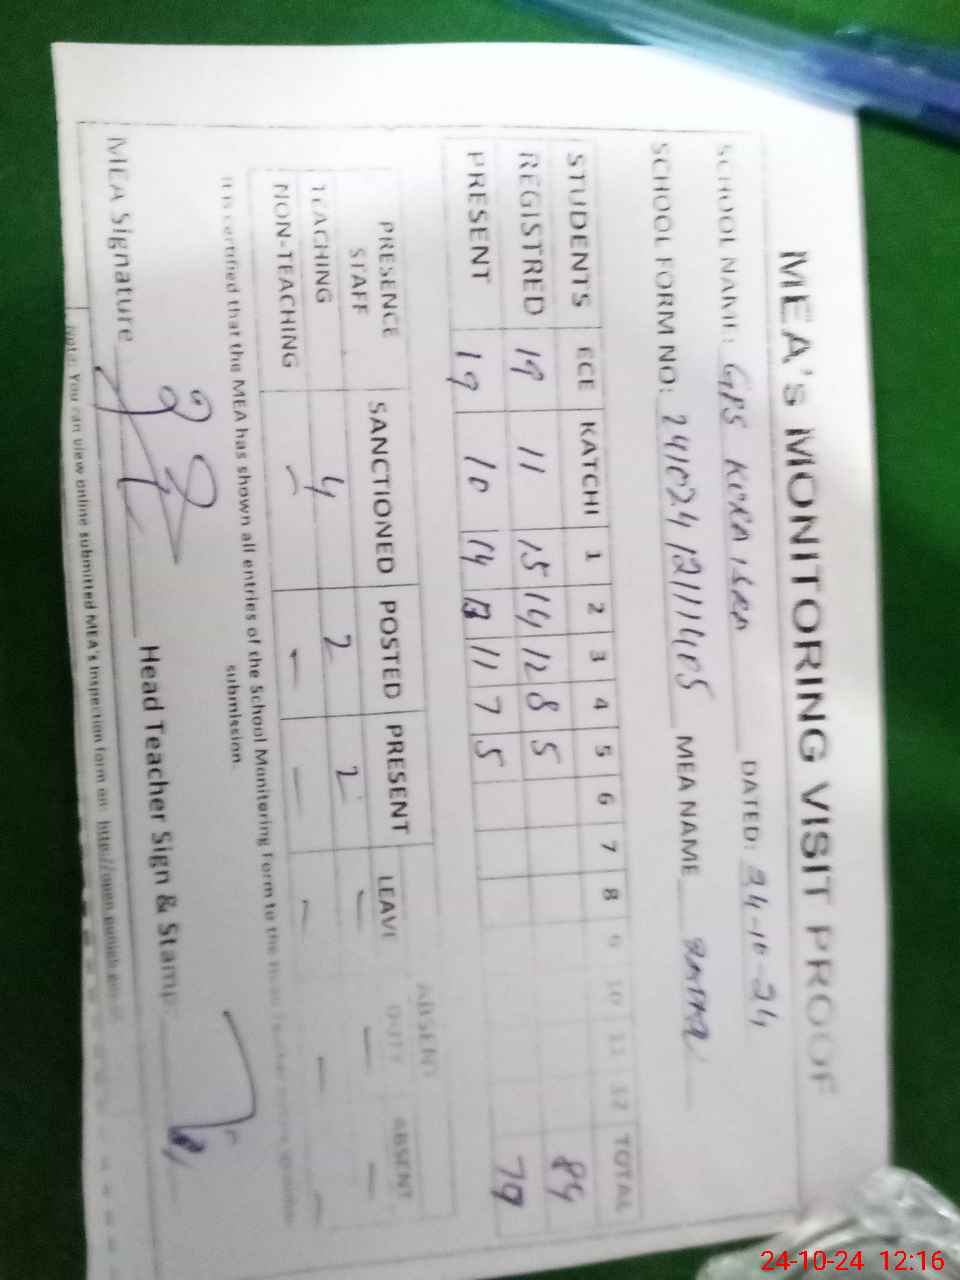 MEA's MONITORING VISIT PROOF
SCHOOL NAME: GPS KORA ISRA DATED: 24-10-24
SCHOOL FORM NO: 241024121111405 MEA NAME
STUDENTS ECE KATCHI 1 2 3 4 5 6 7 8 9 10 11 12 TOTAL
REGISTRED 19 11 15 14 12 8 5 84
PRESENT 19 10 14 11 7 5 79
PRESENCE ABSENT
STAFF SANCTIONED POSTED PRESENT LEAVE DUTY ABSENT
TEACHING 4 2 2 - - -
NON-TEACHING - - - - - -
It is certified that the MEA has shown all entries of the School Monitoring Form to the Head Teacher before
submission.
MEA Signature Head Teacher Sign & Stamp
Note: You can view online submitted MEA's Inspection form on: http://open.punjab.gov
24-10-24 12:16